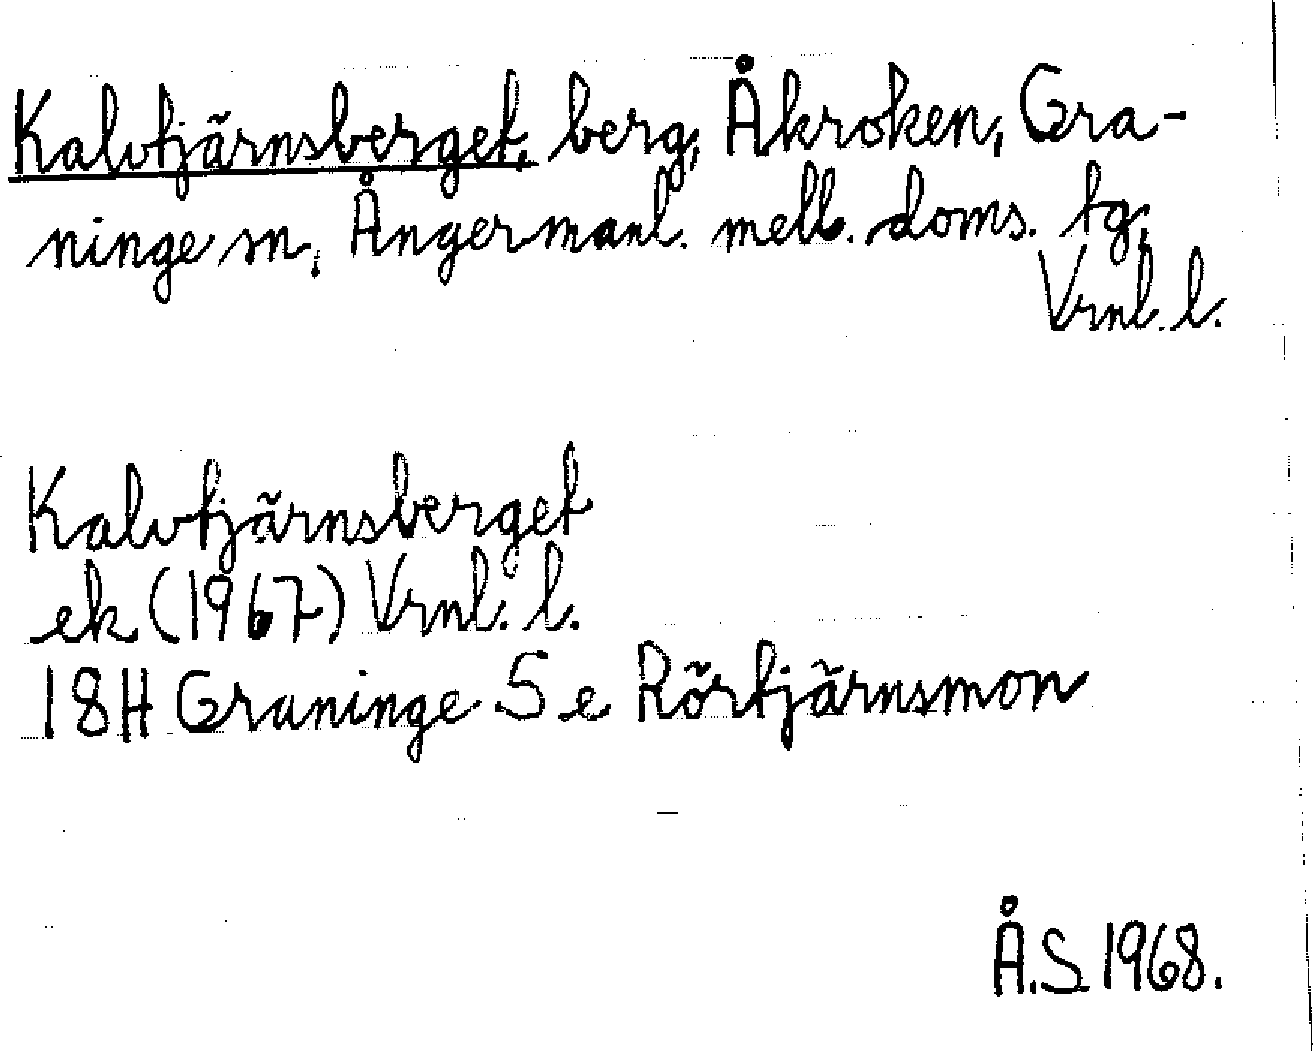 Kalvtjärnsberget, berg, Åkroken, Gra-
ninge sn, Ångermanl. mell. doms. tg,
Vrnl. l.
Kalvtjärnsberget
ek (1967) Vrnl. l.
18H Graninge S e Rörtjärnsmon
Å.S. 1968.